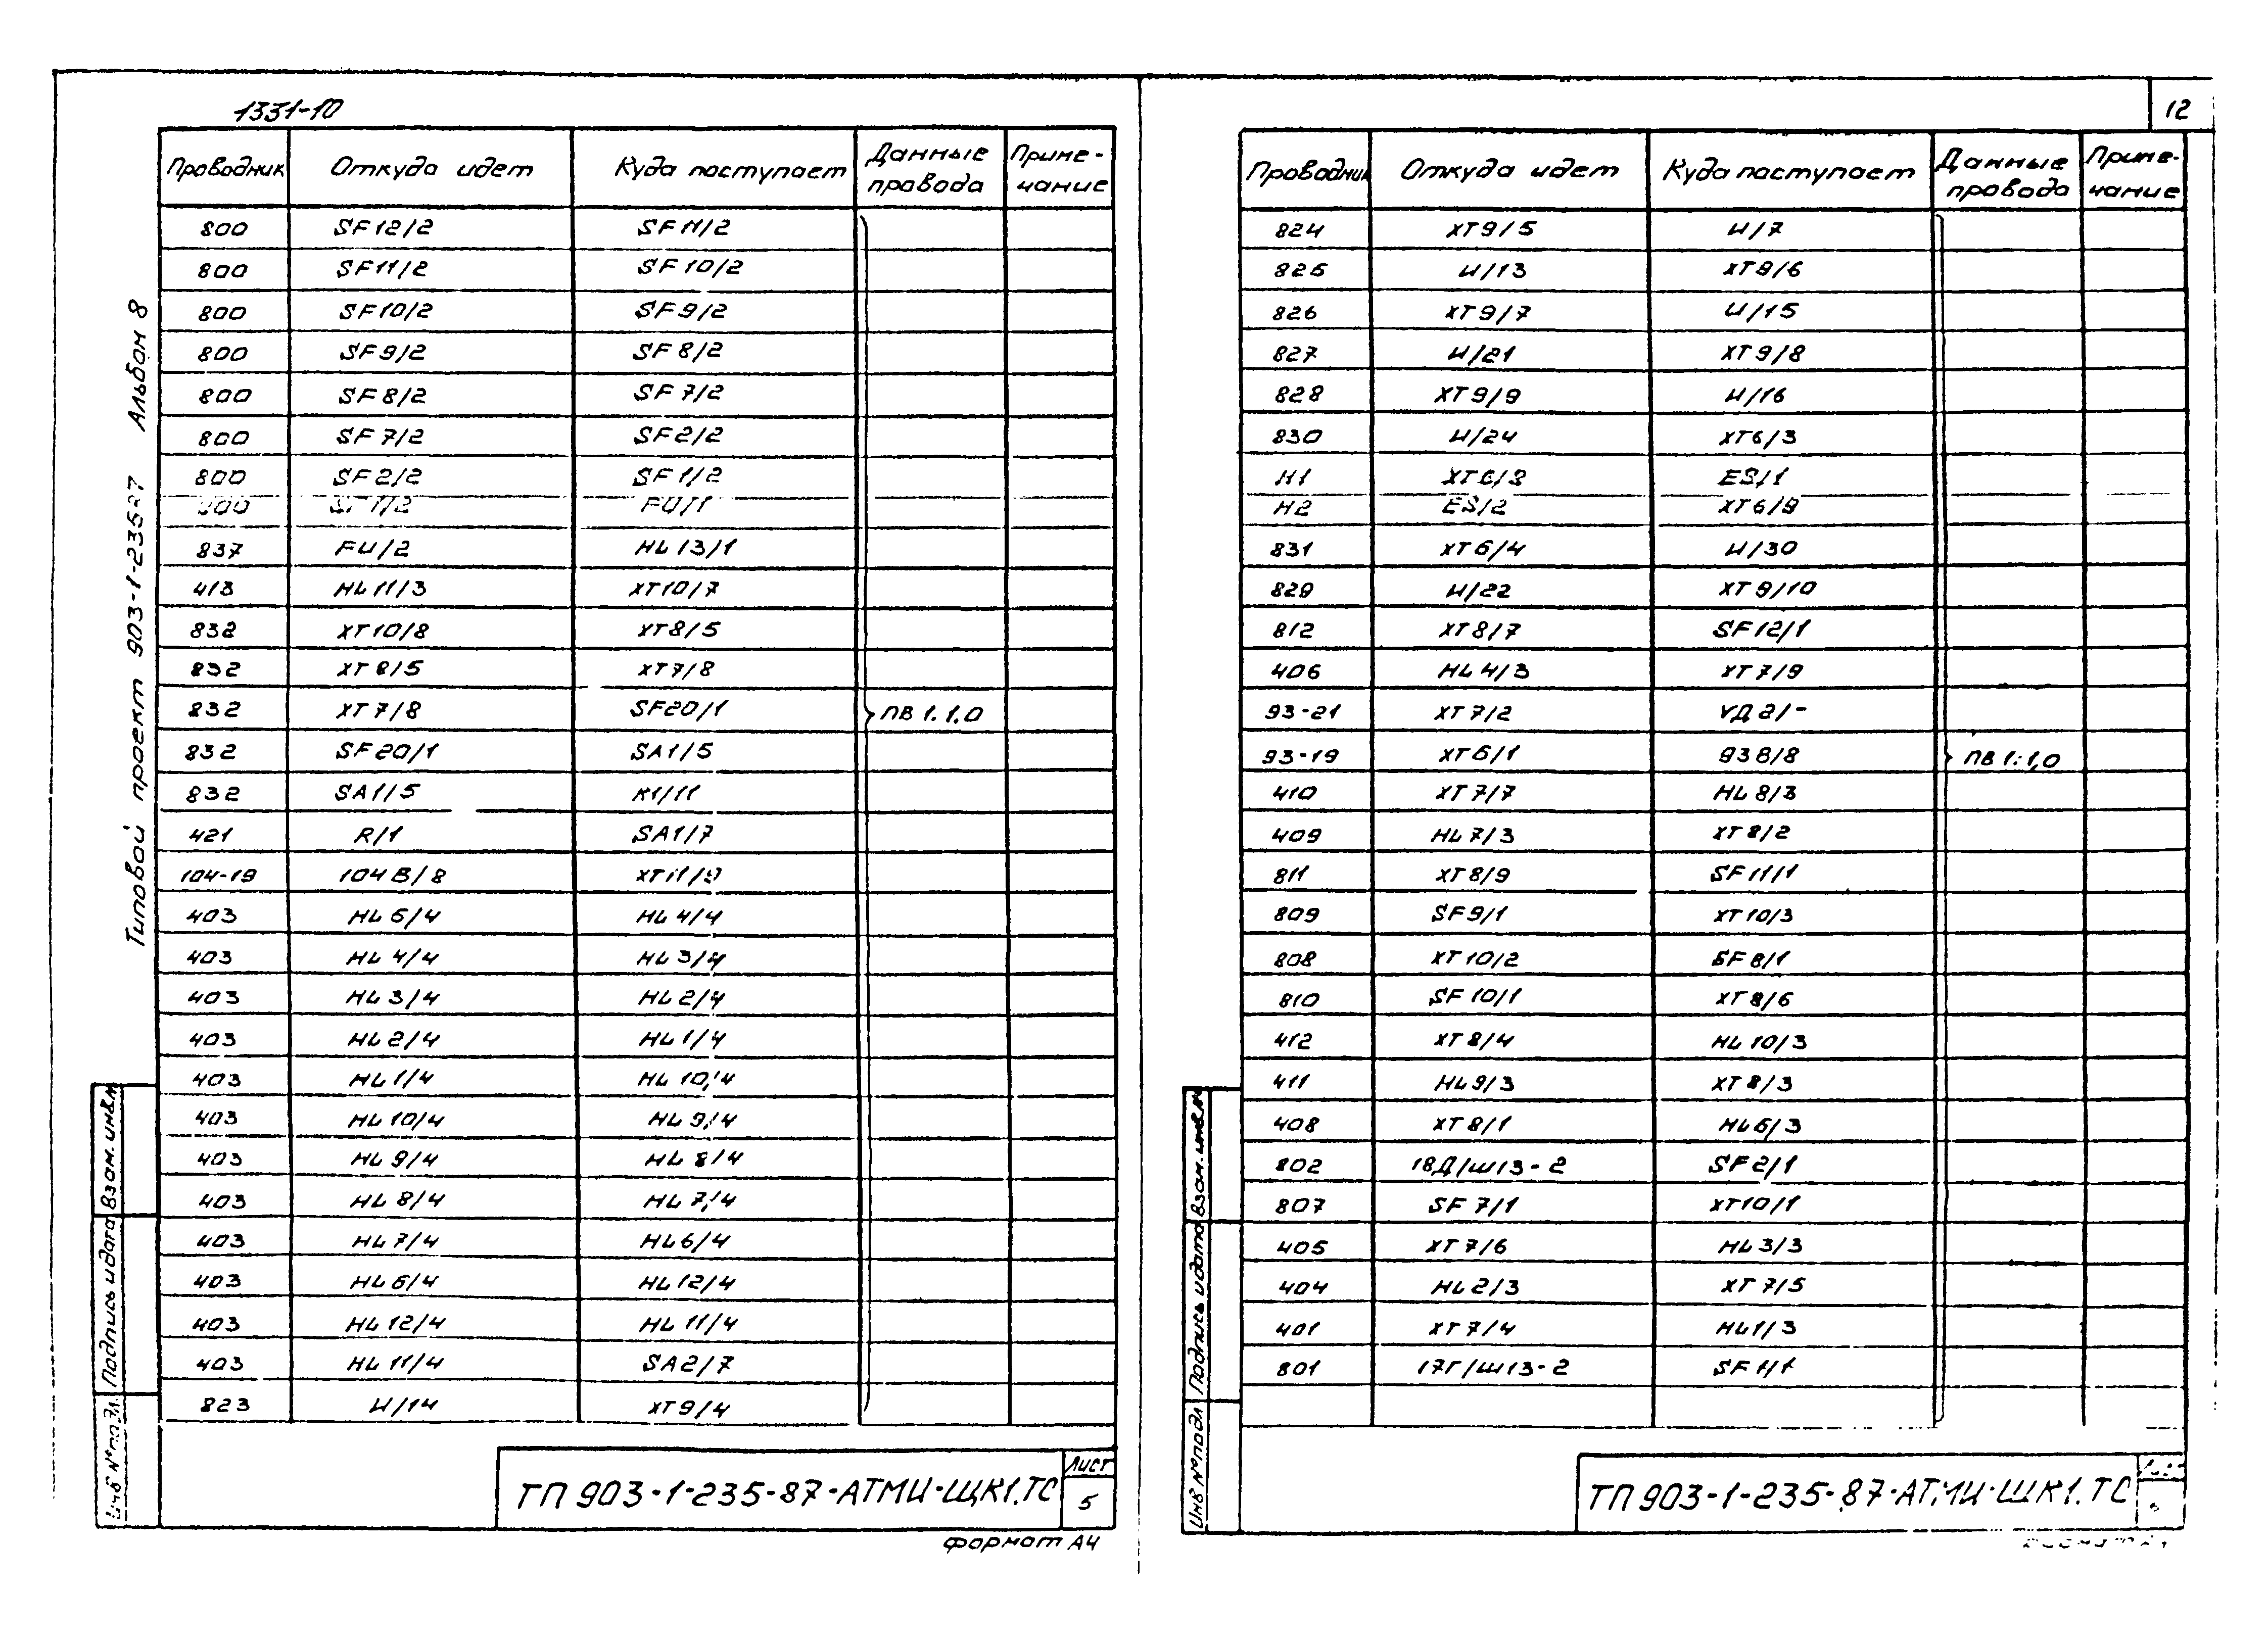 1331-10
12
Типовой проект 903-1-235-87 Альбом 8
Проводник Откуда идет Куда поступает Данные провода Приме-чание
800 SF12/2 SF11/2
800 SF11/2 SF10/2
800 SF10/2 SF9/2
800 SF9/2 SF8/2
800 SF8/2 SF7/2
800 SF7/2 SF2/2
800 SF2/2 SF1/2
800 SF1/2 FU/1
837 FU/2 HL13/1
413 HL11/3 XT10/7
832 XT10/8 XT8/5
832 XT8/5 XT7/8
832 XT7/8 SF20/1 ПВ1.1,0
832 SF20/1 SA1/5
832 SA1/5 K1/11
421 R/1 SA1/7
104-19 104В/8 XT11/9
403 HL5/4 HL4/4
403 HL4/4 HL3/4
403 HL3/4 HL2/4
403 HL2/4 HL1/4
403 HL1/4 HL10/4
403 HL10/4 HL9/4
403 HL9/4 HL8/4
403 HL8/4 HL7/4
403 HL7/4 HL6/4
403 HL6/4 HL12/4
403 HL12/4 HL11/4
403 HL11/4 SA2/7
823 И/14 XT9/4
Взам. инв. №
Подпись и дата
Инв № подл.
ТП 903-1-235-87-АТМИ-ЩК1.ТС
Лист
5
формат А4
Проводник Откуда идет Куда поступает Данные провода Приме-чание
824 XT9/5 И/7
825 И/13 XT9/6
826 XT9/7 И/15
827 И/21 XT9/8
828 XT9/9 И/16
830 И/24 XT6/3
Н1 XT6/8 ES/1
Н2 ES/2 XT6/9
831 XT6/4 И/30
829 И/22 XT9/10
812 XT8/7 SF12/1
406 HL4/3 XT7/9
93-21 XT7/2 УД2/-
93-19 XT6/1 93В/8 ПВ1:1,0
410 XT7/7 HL8/3
409 HL7/3 XT8/2
811 XT8/9 SF11/1
809 SF9/1 XT10/3
808 XT10/2 SF8/1
810 SF10/1 XT8/6
412 XT8/4 HL10/3
411 HL9/3 XT8/3
408 XT8/1 HL6/3
802 18Д/Ш13-2 SF2/1
807 SF7/1 XT10/1
405 XT7/6 HL3/3
404 HL2/3 XT7/5
401 XT7/4 HL1/3
801 17Г/Ш13-2 SF1/1
Взам. инв. №
Подпись и дата
Инв № подл
ТП 903-1-235-87-АТМИ-ЩК1.ТС